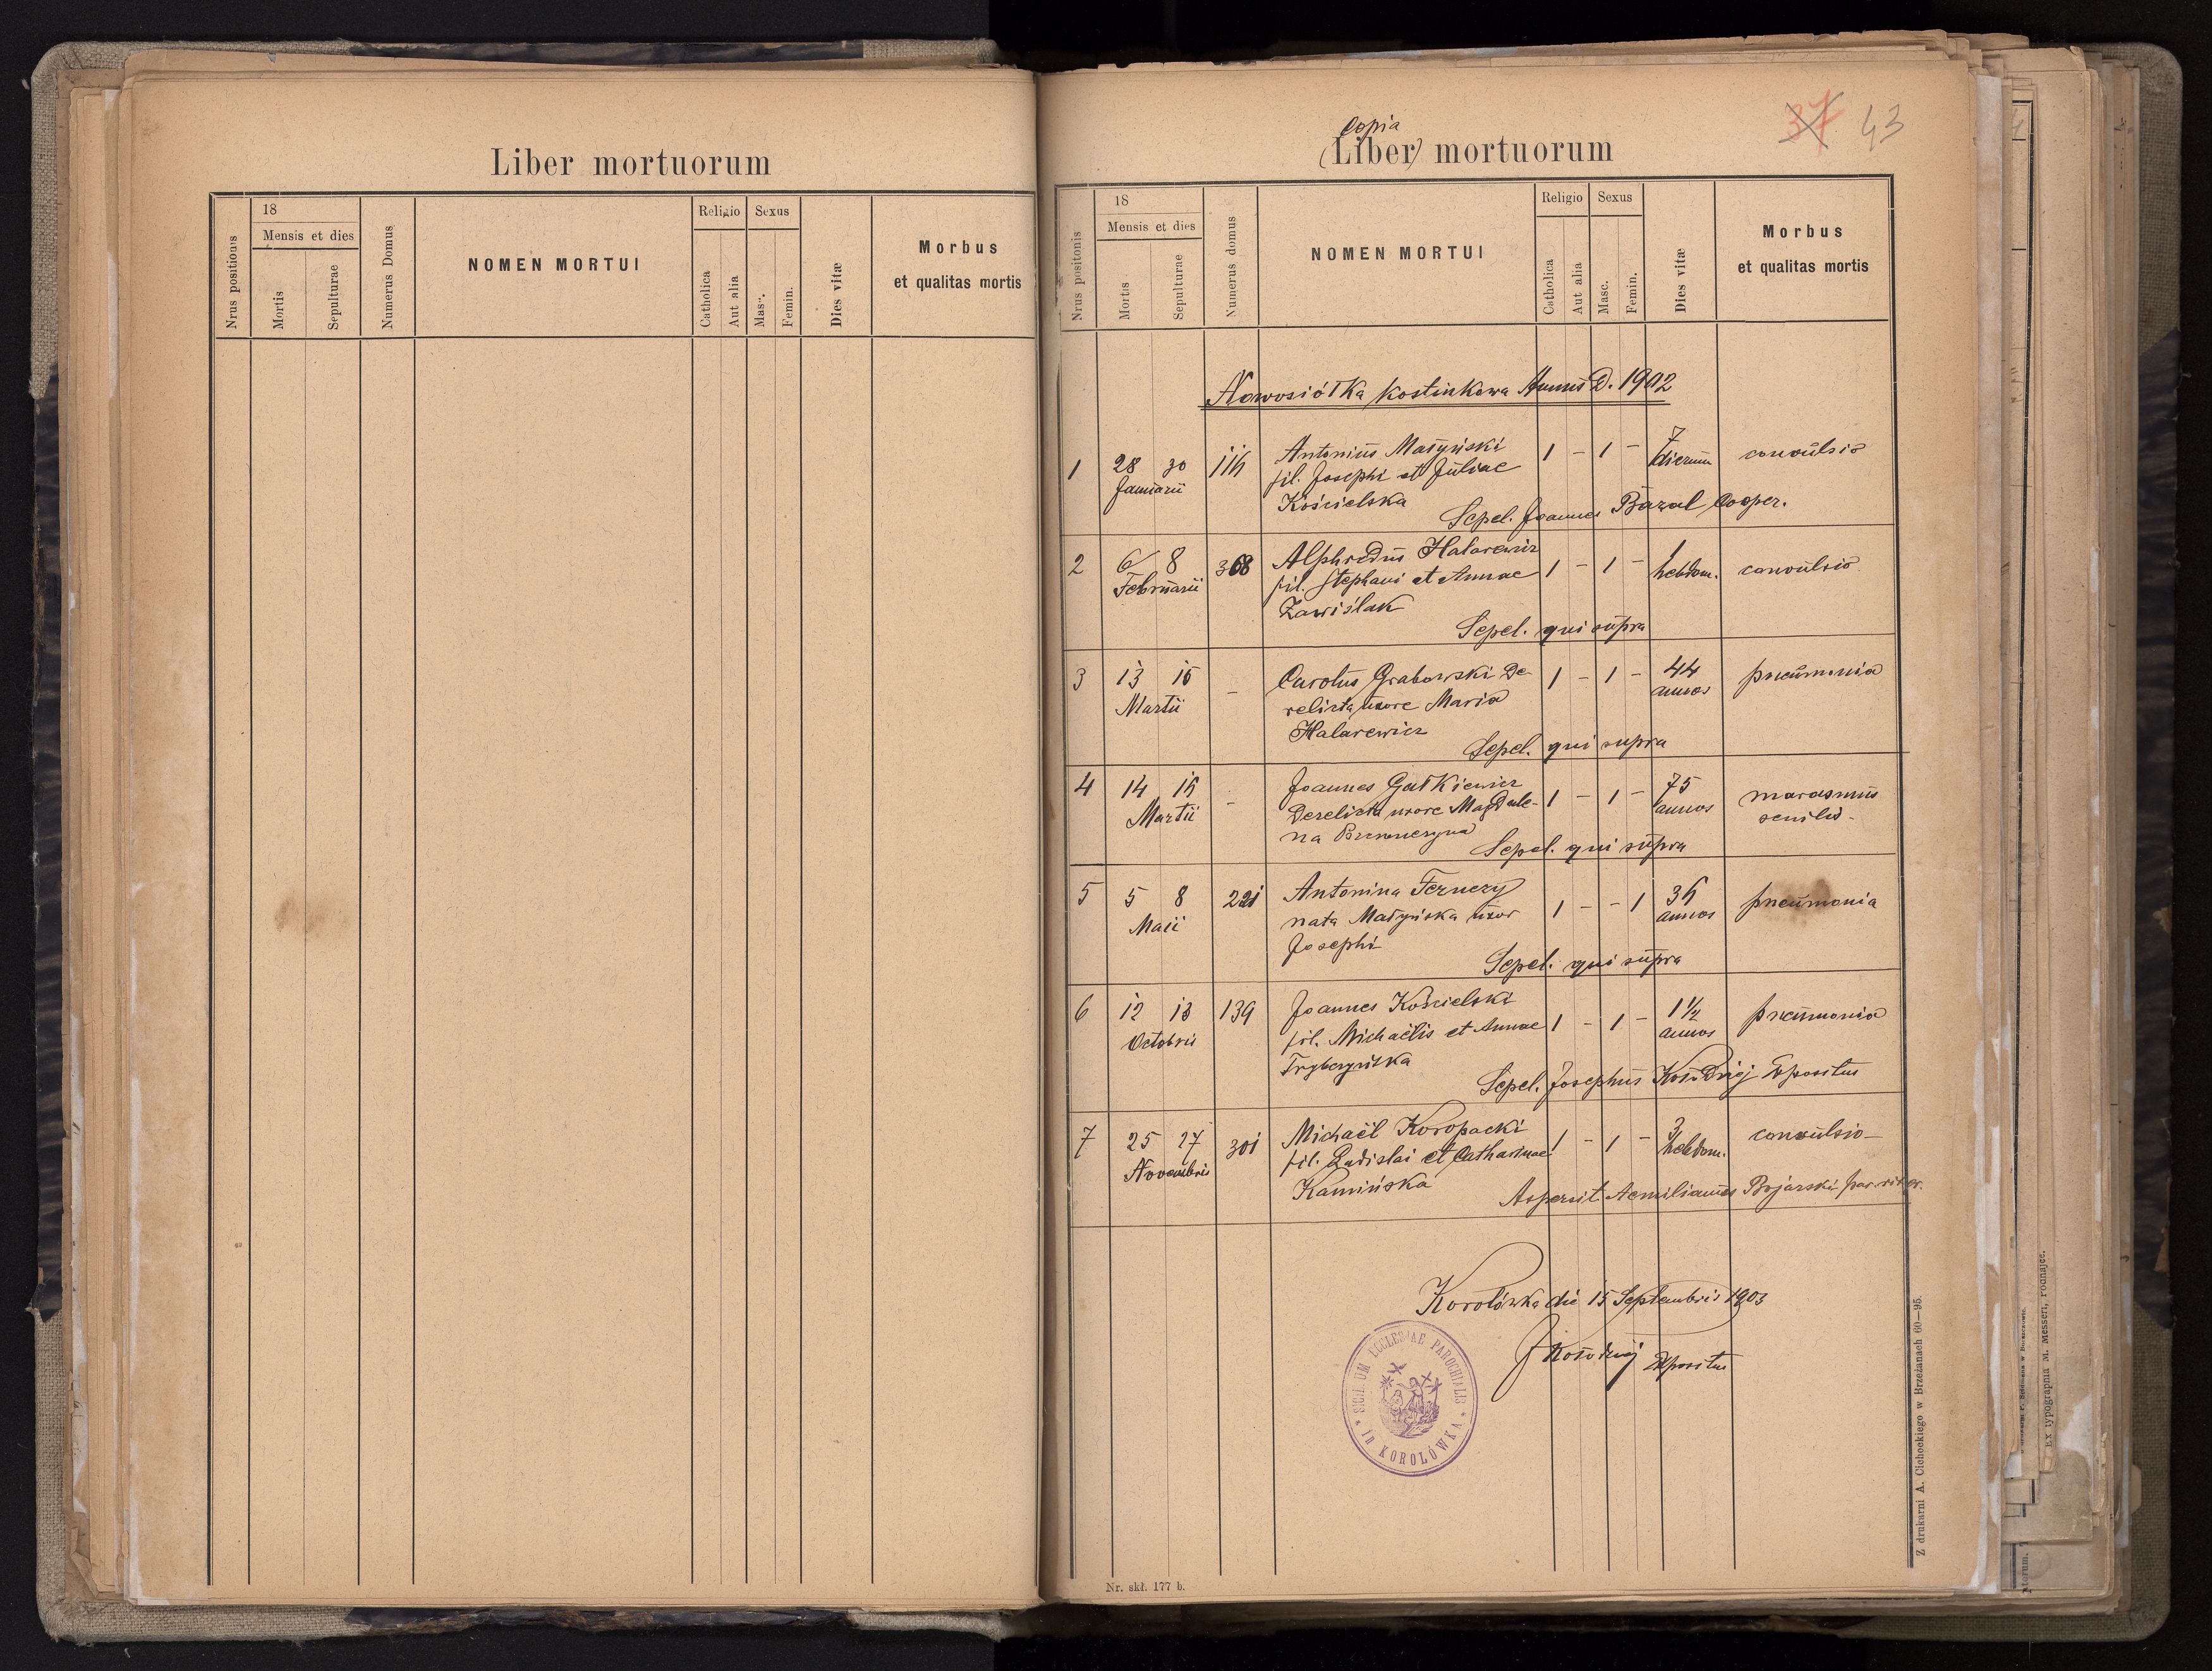 Liber mortuorum
Nrus positionis
18
Mensis et dies
Mortis
Sepulturae
Numerus Domus
NOMEN MORTUI
Religio
Catholica
Aut alia
Sexus
Masc.
Femin.
Dies vitæ
Morbus
et qualitas mortis
37 43
Copia
(Liber) mortuorum
Nrus positonis
18
Mensis et dies
Mortis
Sepulturae
Numerus domus
NOMEN MORTUI
Religio
Catholica
Aut alia
Sexus
Masc.
Femin.
Dies vitæ
Morbus
et qualitas mortis
Nowosiółka Kostiukowa Annus D. 1902
1 28 30 116 Antonius Małyński 1 – 1 – 7 convulsio
Januarii fil. Josephi et Juliae dierum
Kościelska
Sepel. Joannes Bazal Cooper.
2 6 8 368 Alphredus Halarewicz 1 – 1 – 1 convulsio
Februarii fil. Stephani et Annae hebdom.
Zawiślak
Sepel. qui supra
3 13 15 – Carolus Grabowski De- 1 – 1 – 44 pneumonia
Martii relicta uxore Maria annos
Halarewicz
Sepel. qui supra
4 14 16 – Joannes Gutkiewicz 1 – 1 – 75 marasmus
Martii Derelicta uxore Magdale- annos senilis
na
Sepel. qui supra
5 5 8 221 Antonina Ferneży 1 – – 1 36 pneumonia
Maii nata Małyńska uxor annos
Josephi
Sepel. qui supra
6 12 13 139 Joannes Kościelski 1 – 1 – 1½ pneumonia
Octobris fil. Michaëlis et Annae annos
Sepel. Josephus Expositus
7 25 27 301 Michaël Koropacki 1 – 1 – 3 convulsio
Novembris fil. Ladislai et Catharinae hebdom.
Kamińska
Aspersit Aemilianus Bojarski par. rit. gr.
Korolówka die 15 Septembris 1903
Expositus
SIGILLUM ECCLESIAE PAROCHIALIS
in KOROLÓWKA
Nr. skł. 177 b.
Z drukarni A. Cichockiego w Brzeżanach 60—95.
Ex typographia M. Messeri, Podhajce.